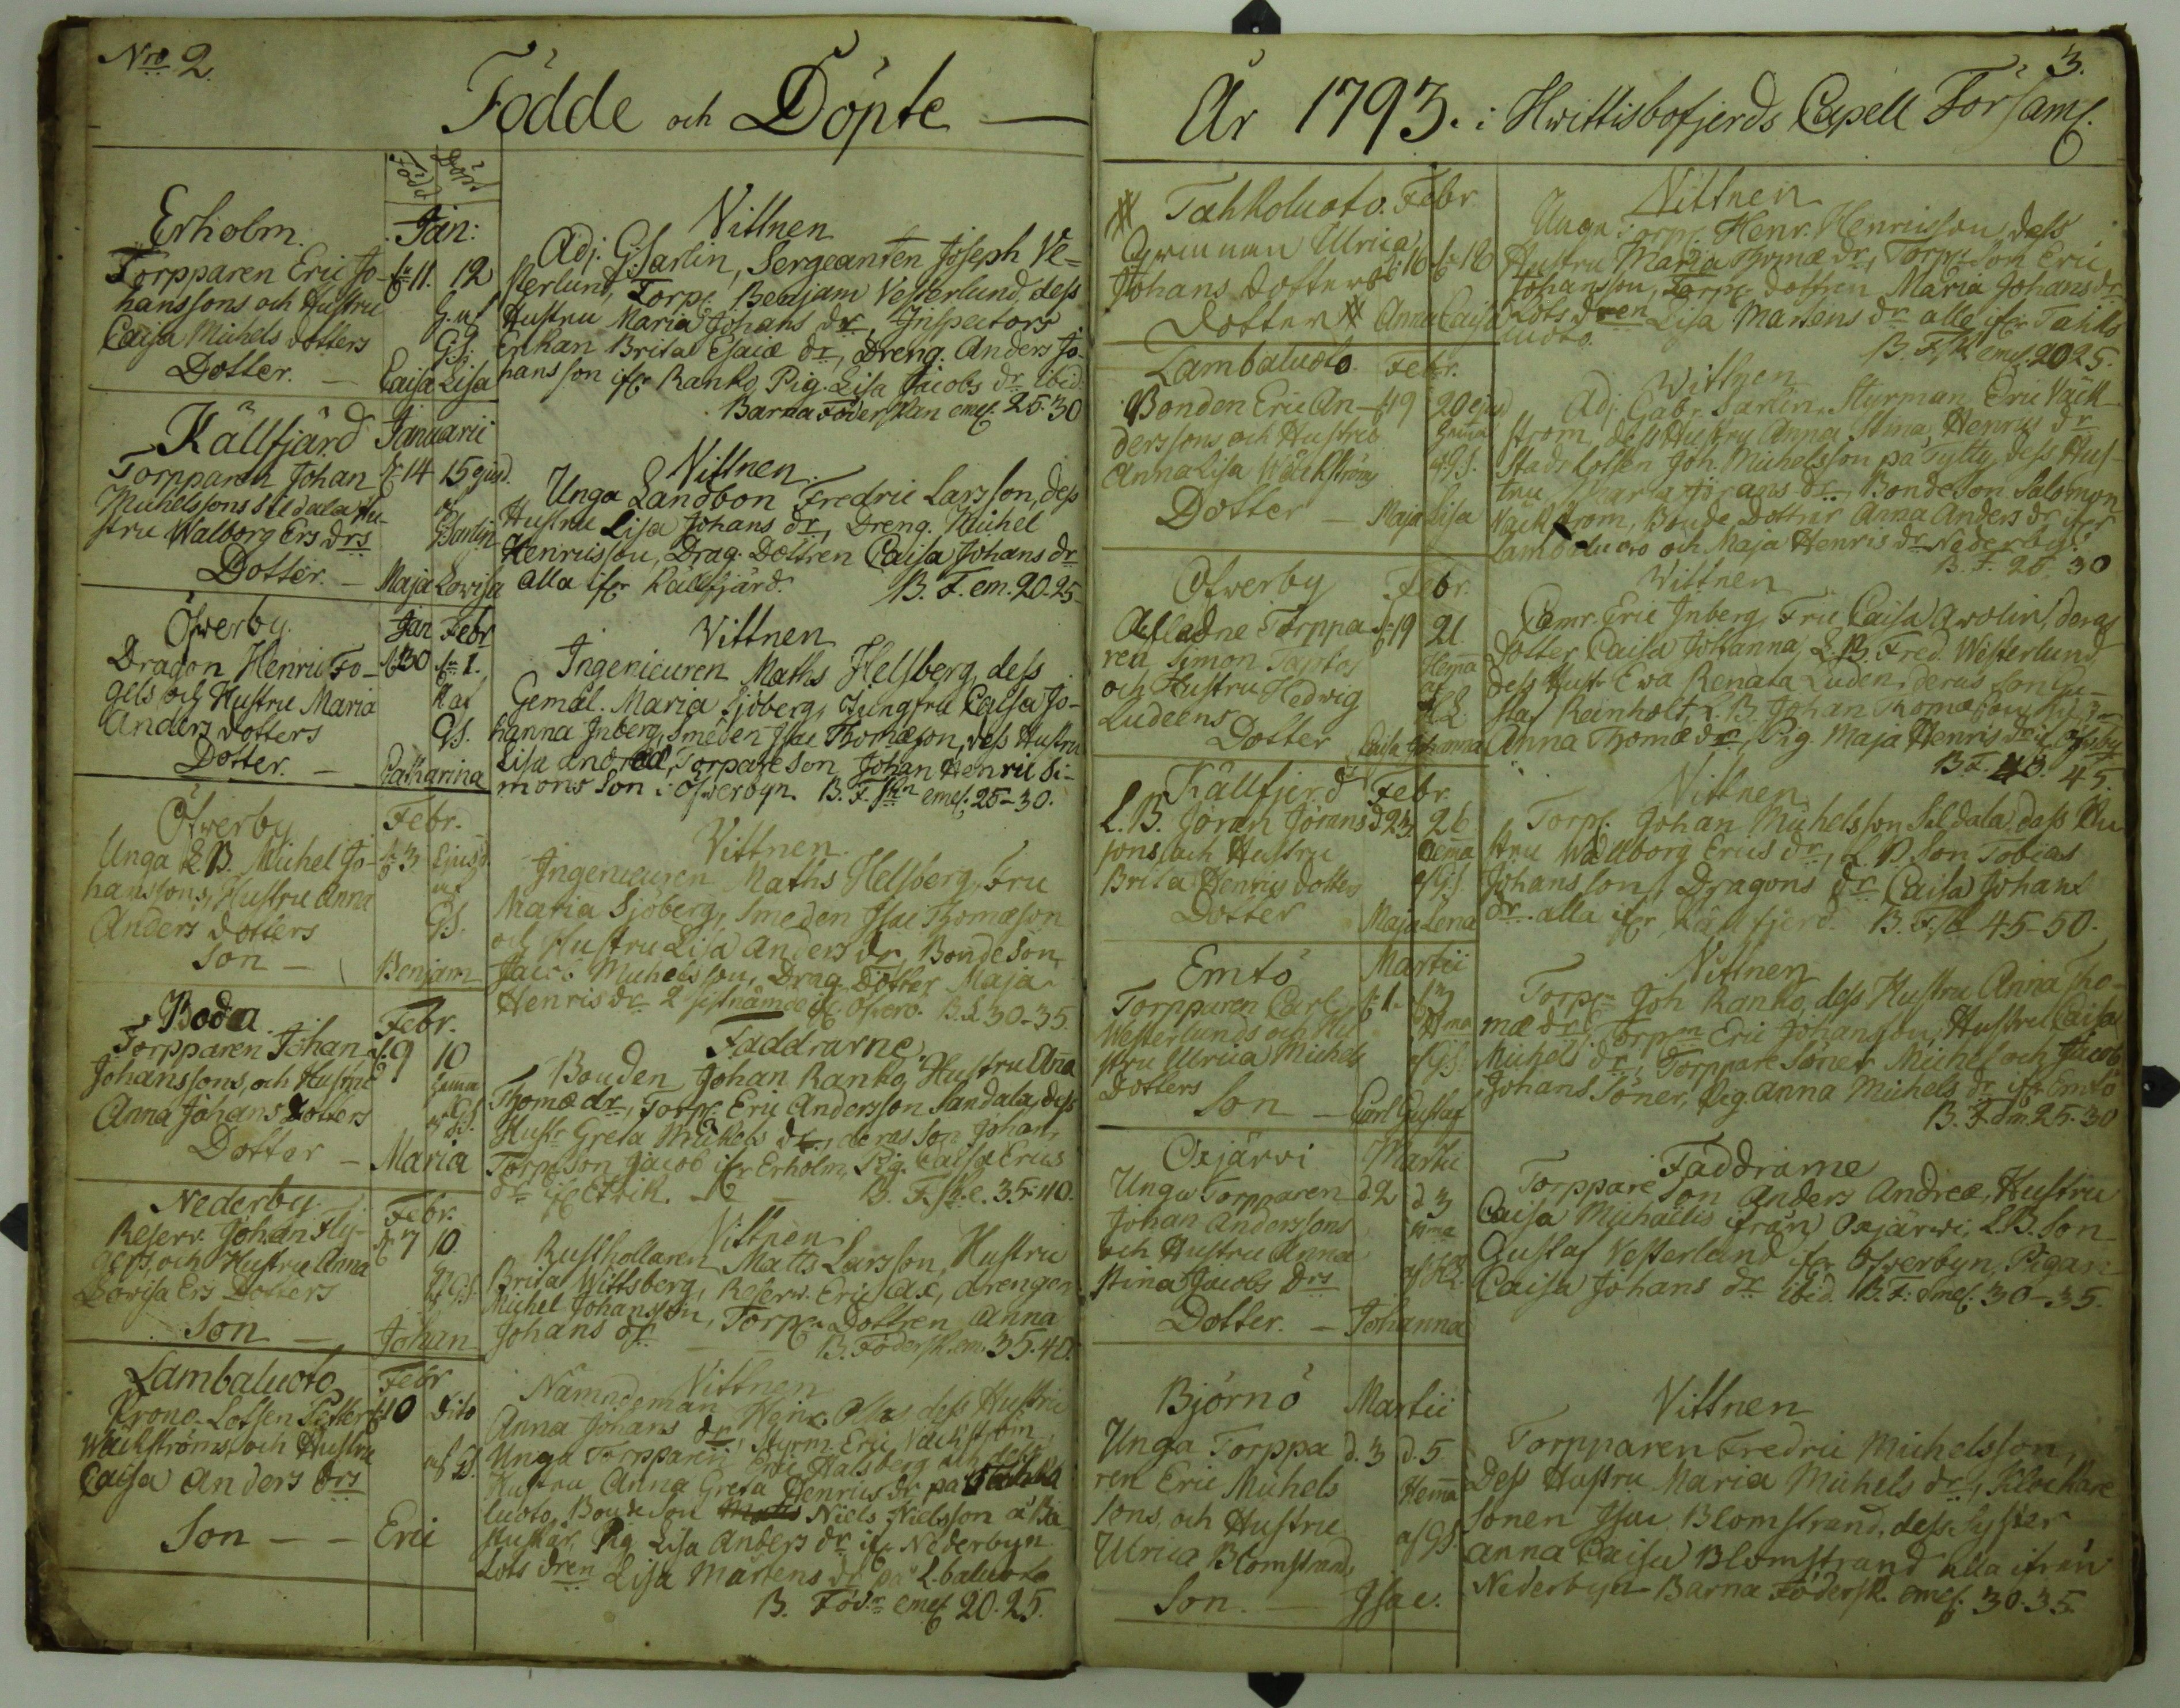 Nro 2.
Födde och Döpte
Född Döpt
Erholm. Jan: Vittnen
Torpparen Eric Jo- d. 11. 12
hanssons och Hustru
Caisa Michels dotters G.S.
Dotter. Caisa Lisa
Adj. G. Sarlin, Sergeanten Joseph Ve=
sterlund, Torp. Benjam Vesterlund, dess
Hustru Maria Johans dr, Inspectors
Enkan Brita Esaiæ dr, Dreng. Anders Jo-
hansson ifr Ranko, Pig. Lisa Jacobs dr ibid.
Barna Föderskan emel. 25-30
Källfjärd Januarii
Torpparen Johan d. 14 15 ejusd.
Michelssons Sildala Hu-
stru Walborg Ers drs GSarlin
Dotter. Maja Lovisa
Vittnen
Unga Landbon Fredric Larsson, dess
Hustru Lisa Johans dr, Dreng. Michel
Henricsson, Drag. Dottren Caisa Johans dr
alla ifr Källfjärd. B. F. em. 20-25
Öfwerby. Jan Febr
Dragon Henric Fo- d. 30 d. 1.
gels och Hustru Maria
Anders dotters GS.
Dotter. Catharina
Vittnen
Ingenieuren Maths Helsberg, dess
Gemål. Maria Sjöberg, Jungfru Caisa Jo-
hanna Inberg, Smeden Isac Thomæson, dess Hustru
Lisa Andreæ, Torpare Son Johan Henric Si-
mons Son i Öfwerbyn. B. F. skn emel. 25-30.
Öfwerby Febr.
Unga L.B. Michel Jo- d. 3 Ejusd.
hanssons, Hustru Anna af
Anders dotters GS.
Son Benjam
Vittnen
Ingenieuren Maths Helsberg, Fru
Maria Sjöberg, Smeden Isac Thomæson
och Hustru Lisa Anders dr, Bonde Son
Jacob Michelsson, Drag. Dotter Maja
Henrics dr 30-35.
Boda Febr.
Torpparen Johan d. 9 10
Johanssons, och Hustru hema
Anna Johans Dotters af GS.
Dotter Maria
Faddrarne
Bonden Johan Ranko, Hustru Ana
Thomæ dr, Torp. Eric Andersson Sandala, dess
Hust. Greta Michels dr, deras Son Johan,
Torp. Son Jacob ifr Erholm, Pig. Caisa Erics
dr B. F. sk. e. 35-40.
Nederby. Febr.
Reserv. Johan Fly- d. 7 10
gers, och Hustru Anna
Lovisa Ers Dotters af GS
Son Johan
Vittnen
Rusthollaren Matts Larsson, Hustru
Brita Wittsberg, Reserv. Eric Ax, drengen
Michel Johansson, Torp. Dottren Anna
Johans dr B. Födersk. em. 35-40.
Lambaluoto Febr
Krono-Lotsen Petter d. 10 Dito
Wäckströms, och Hustru
Caisa Anders drs
Son Eric
Vittnen
Nämndeman Henr. dess Hustru
Anna Johans dr, Styrm. Eric Väckström,
Unga Torpparen Eric Halsberg och dess
Hustru Anna Greta Henrics dr på Tahko
luoto, Bonde Son Niels Nielsson
Pig. Lisa Anders dr ifr Nederbyn
Lots dren Lisa Mårtens dr på L.baluoto
B. Föd. emel. 20-25.
3.
År 1793. i Hwittisbofjerds Capell Församl.
Tahkoluoto. Febr.
Ulrica
Johans dotters d. 16 d. 18
Dotter Anna Caisa
Vittnen
Unga Torp. Henr. Henricsson, dess
Hustru Maria Thomæ dr, Torp. Son Eric
Johansson, Torp. dottren Maria Johans dr
Lots dren Lisa Mårtens dr alle ifr Tahko
luoto. B. F. emel. 20-25.
Lambaluoto Febr.
Bonden Eric An- d. 19 20 ejusd
derssons och Hustru hema
Anna Lisa Wäckströms af GS.
Dotter Maja Lisa
Vittnen
Adj. Gabr. Sarlin, Styrman Eric Väck-
ström, dess Hustru Anna Stina Henrics dr
Stads Lotsen Joh. Michelsson på Tytty, dess Hus-
tru Maria Jörans dr, Bonde Son Salomon
Väckström, Bonde Dottrar Anna Anders dr ifr
Lambaluoto och Maja Henrics dr Nederby.
B. F. 25-30
Öfwerby Febr.
Aflidne Torppa- d. 19 21
ren Simon Taptos Hema
och Hustru Hedwig
Ludeens
Dotter Caisa Johanna
Vittnen
Comr. Eric Inberg, Fru Caisa Arolin, deras
dotter Caisa Johanna, L.B. Fred. Westerlund,
dess Hustr. Ewa Renata Luden, deras Son Gu-
staf Reinholt, L.B. Johan Thomæson
Anna Thomæ dr, Pig. Maja Henrics dr
B F. 40-45.
Källfjerd Febr.
L.B. Jöran Jörans d 23 26
sons, och Hustru Hema
Brita Henrics dotters af GS.
Dotter Maja Lena
Vittnen
Torp. Johan Michelsson Sildala, dess Hu
stru Wallborg Erics dr, L. B. Son Tobias
Johansson, Dragons dr Caisa Johans
dr. alla ifr Källfjerd. B. F. sk 45-50.
Emtö Martii
Torpparen Carl d. 1. d. 3
Westerlunds och Hu Hma
stru Ulrica Michels af GS.
dotters
Son Carl Gustaf
Vittnen
Torpn Joh Ranko, dess Hustru Anna Tho-
mæ dr, Torpn Eric Johansson, Hustru Caisa
Michels dr, Torppare Söner Michel och Jacob
Johans Söner, Pig. Anna Michels dr ifr Emtö
B. F. em. 25-30
Oxjärvi Martii
Unga Torpparen d. 2 d 3
Johan Anderssons hma
och Hustru Anna
Stina Jacobs drs
Dotter. Johanna
Faddrarne
Torppare Son Anders Andreæ, Hustru
Caisa Michaelis ifrån Oxjärwi, L.B. Son
Gustaf Vesterlund ifr Öfwerbyn, Pigan
Caisa Johans dr ibid. B. F: emel. 30-35.
Björnö Martii
Unga Torppa d. 3 d. 5.
ren Eric Michels Hema
sons, och Hustru
Ulrica Blomstrand af GS.
Son. Isac.
Vittnen
Torpparen Fredric Michelsson,
Dess Hustru Maria Michels dr, Klockare
Sonen Isac Blomstrand, dess Syster
Anna Caisa Blomstrand alla ifrån
Nederbyn Barna Födersk. emel. 30-35.